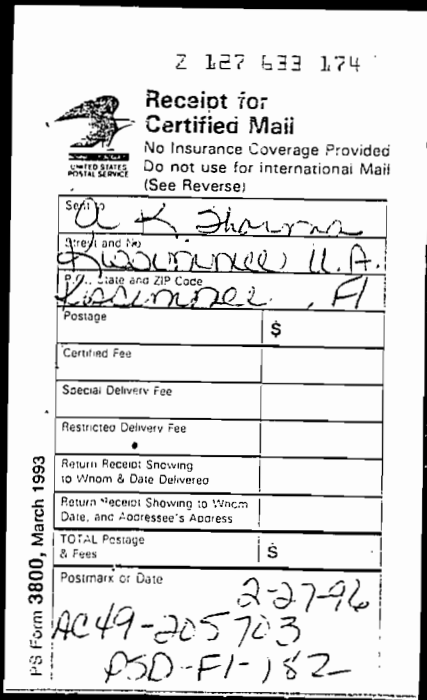 Z 127 633 174
Receipt for
Certified Mail
No Insurance Coverage Provided
Do not use for International Mail
(See Reverse)
UNITED STATES
POSTAL SERVICE
Sent to
A K Sharma
Street and No
Kissimmee U.A.
P.O., State and ZIP Code
Kissimmee, Fl
Postage
$
Certified Fee
Special Delivery Fee
Restricted Delivery Fee
Return Receipt Showing
to Whom & Date Delivered
Return Receipt Showing to Whom
Date, and Addressee's Address
TOTAL Postage
& Fees
$
Postmark or Date
2-27-96
AC49-205703
PSD-Fl-182
PS Form 3800, March 1993